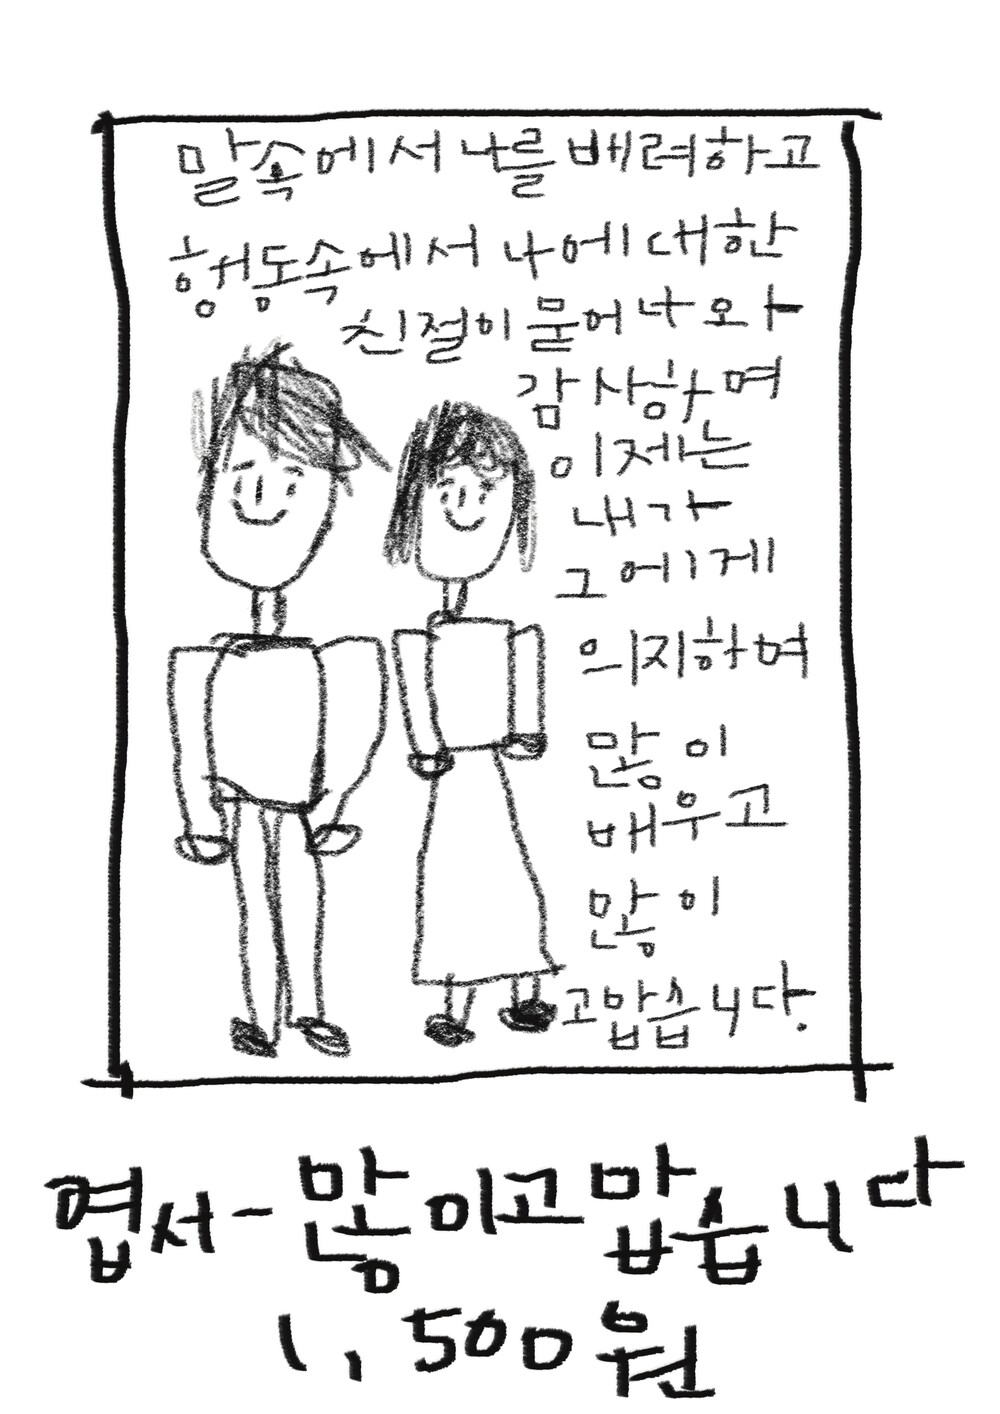 말속에서 나를 배려하고
행동속에서 나에 대한
친절이 묻어 나와
감사하며
이제는
내가
그에게
의지하며
많이
배우고
많이
고맙습니다.
엽서-많이고맙습니다
1,500원